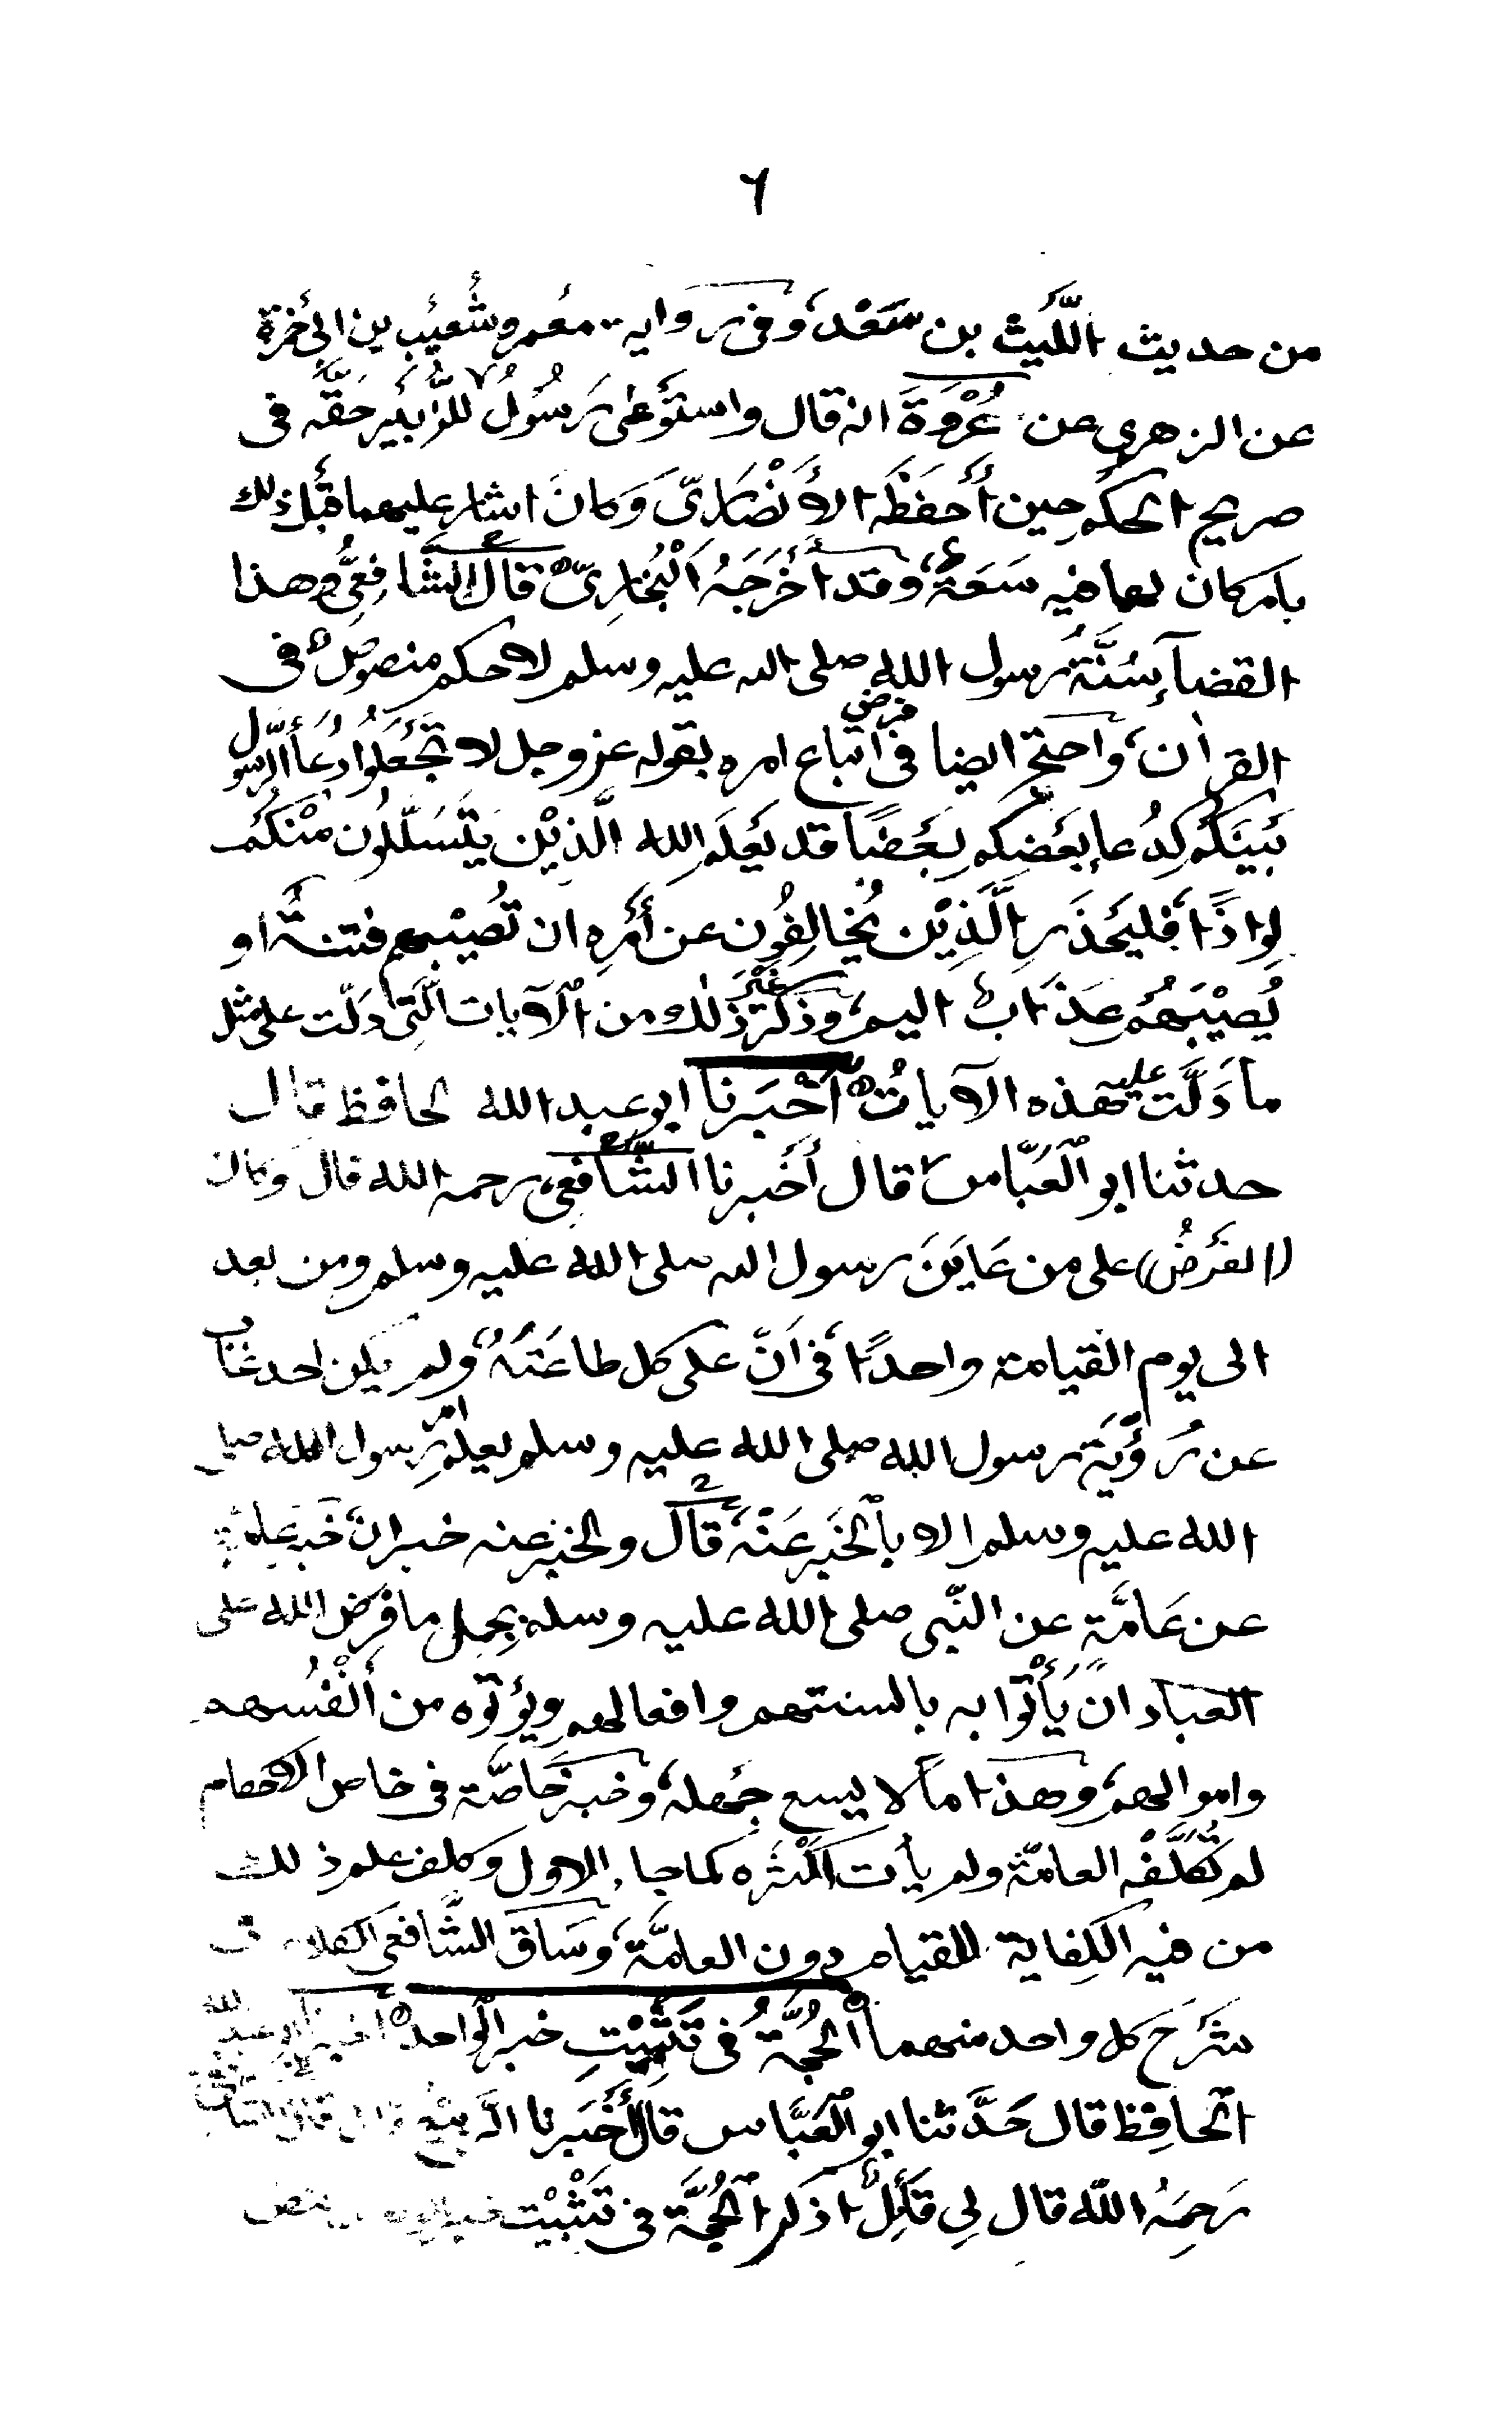 ٦
من حديث اللَّيْث بن سَعْد، وفى رواية معمر وشُعَيْب بن ابى حمزة
عن الزهري عن عُرْوَةَ انه قال واستَوْعٰى رَسُولُ للزُّبَيْر حَقَّه فى
صريح الحكم حين أَحفَظَه الأَنْصَارىّ وَكانَ اشار عليهما قَبْلَ ذلك
بامر كان لهما فيه سَعَةٌ، وقد أَخْرَجَهُ البُخارِىّ ه قال الشَّافِعىُّ وهذا
القضآء سُنَّةُ رسول الله صلى الله عليه وسلم لا حكم منصوصٌ فى
القراٰن، واحتج ايضا فى فرض اتباع امره بقوله عزوجل لا تَجْعَلُوا دُعَآءَ الرَّسُول
بَيْنَكُمْ كَدُعآءِ بَعْضِكم بَعْضًا قد يَعْلَم الله الَّذِيْن يَتَسَلَّلُون مِنْكُم
لِوَاذًا، فليَحْذَرِ الَّذِيْن يُخالِفُون عن أَمْرِهِ ان تُصِيْبهم فِتنةٌ او
يُصِيْبَهُمْ عَذَابٌ اليم، وذَكَرَ غَيْرَ ذٰلك من الآيات الَّتِى دَلّت على مثل
ما دَلَّت عليه هذه الآياتُ ه أَخْبَرنا ابو عبد الله الحافظ قال
حدثنا ابو العَبَّاس قال أَخْبرنا الشَّافعى، رحمه الله قال وكان
(الفَرْضُ) على من عَايَنَ رسول الله صلى الله عليه وسلم ومن بعد
الى يوم القيامة واحدًا، فى اَنّ على كل طاعَتَهُ، ولم يكن احد غاب
عن رُؤْيَة رسول الله صلى الله عليه وسلم يعلم امر رسول الله صلى
الله عليه وسلم الا بالْخَبَر عَنْهُ، قَال والخبر عنه خبران خَبَر عامّة
عن عَامَّةٍ عن النّبى صلى الله عليه وسلم بجمل ما فرض الله على
العباد انْ يَأْتُوا به بالسنتهم وافعالهم ويُؤتوه من أَنْفُسهم
واموالهم، وهذا ما لا يسع جَهله، وخبر خاصّة فى خاص الاحكام
لم تُكَلَّفْه العامّة ولم يأت اكْثره كما جاء الاول وكلف علم ذلك
من فيه الكِفاية للقيام دون العامَّة، وَسَاق الشَّافعى الكلام فى
شَرْح كل واحد منهما الحُجَّةُ فى تَثْبِيْتِ خبر الواحد ه اخبرنا ابو عبد الله
الحافِظ قال حَدَّثنا ابو العَبَّاس قال أَخْبَرنا الرَّبِيْع قال قال الشافعى
رَحِمَهُ اللّه قال لِى قآئِلٌ اذكر الحُجَّة فى تَثْبِيْت خبر الواحد بنص